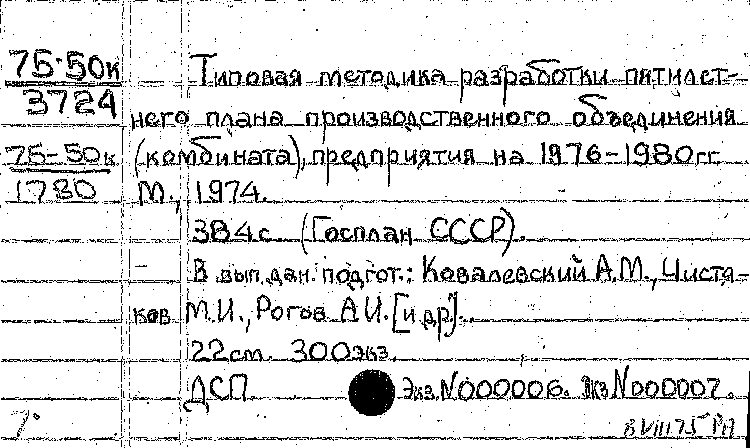 75-50к
3724
75-50к
1780
Типовая методика разработки пятилет-
него плана производственного объединения
(комбината), предприятия на 1976-1980гг.
М., 1974.
384с. (Госплан СССР).
В вып. дан. подгот.: Ковалевский А.М., Чистя-
ков М.И., Рогов А.И. [и др].
22см. 300экз.
ДСП. Экз. N000006. Экз N000007.